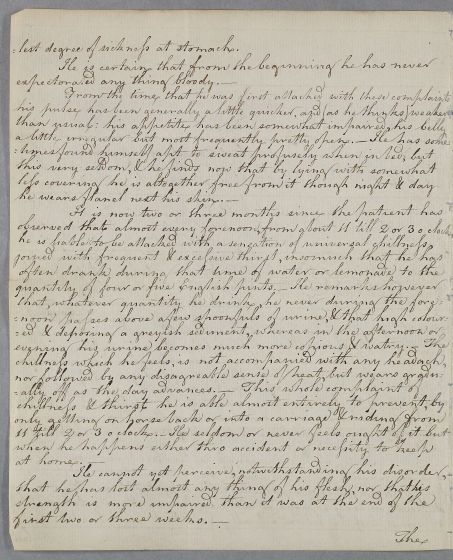 -lest degree of sickness at stomach.
He is certain that from the beginning he has never
expectorated any thing bloody. —
From the time that he was first attacked with these complaints
his pulse has been generally a little quicker, and (as he thinks) weaker
than usual: his appetite has been somewhat impaired; his belly
a little irregular but most frequently pretty open. — He has some
-times found himself apt to sweat profusely when in bed, but
this very seldom, & he finds now that by lying with somewhat
less covering he is altogether free from it though night & day
he wears flanel next his skin. —
It is now two or three months since the patient has
observed that almost every forenoon, from about 11 till 2 or 3 o'clock
he is liable to be attacked with a sensation of universal chilness,
joined with frequent & excessive thirst, insomuch that he has
often drank during that time of water or lemonade to the
quantity of four or five English pints. — He remarks however
that, whatever quantity he drink, he never during the fore-
-noon passes above a few spoonfuls of urine, & that high colour-
-ed & deposing a greyish sediment, whereas in the afternoon or
evening his urine becomes much more copious & watry. — The
chillness which he feels is not accompanied with any headach,
nor followed by any disagreable sense of heat, but wears gradu-
-ally off as the day advances. — This whole complaint of
chillness & thirst he is able almost entirely to prevent, by
only getting on horseback or into a carriage & riding from
11 till 2 or 3 o'clock. — He seldom or never feels ought of it but
when he happens either thro accident or necessity to keep
at home.
He cannot yet perceive, notwithstanding his disorder,
that he has lost almost any thing of his flesh, nor that his
strength is more impaired than it was at the end of the
first two or three weeks. —
The